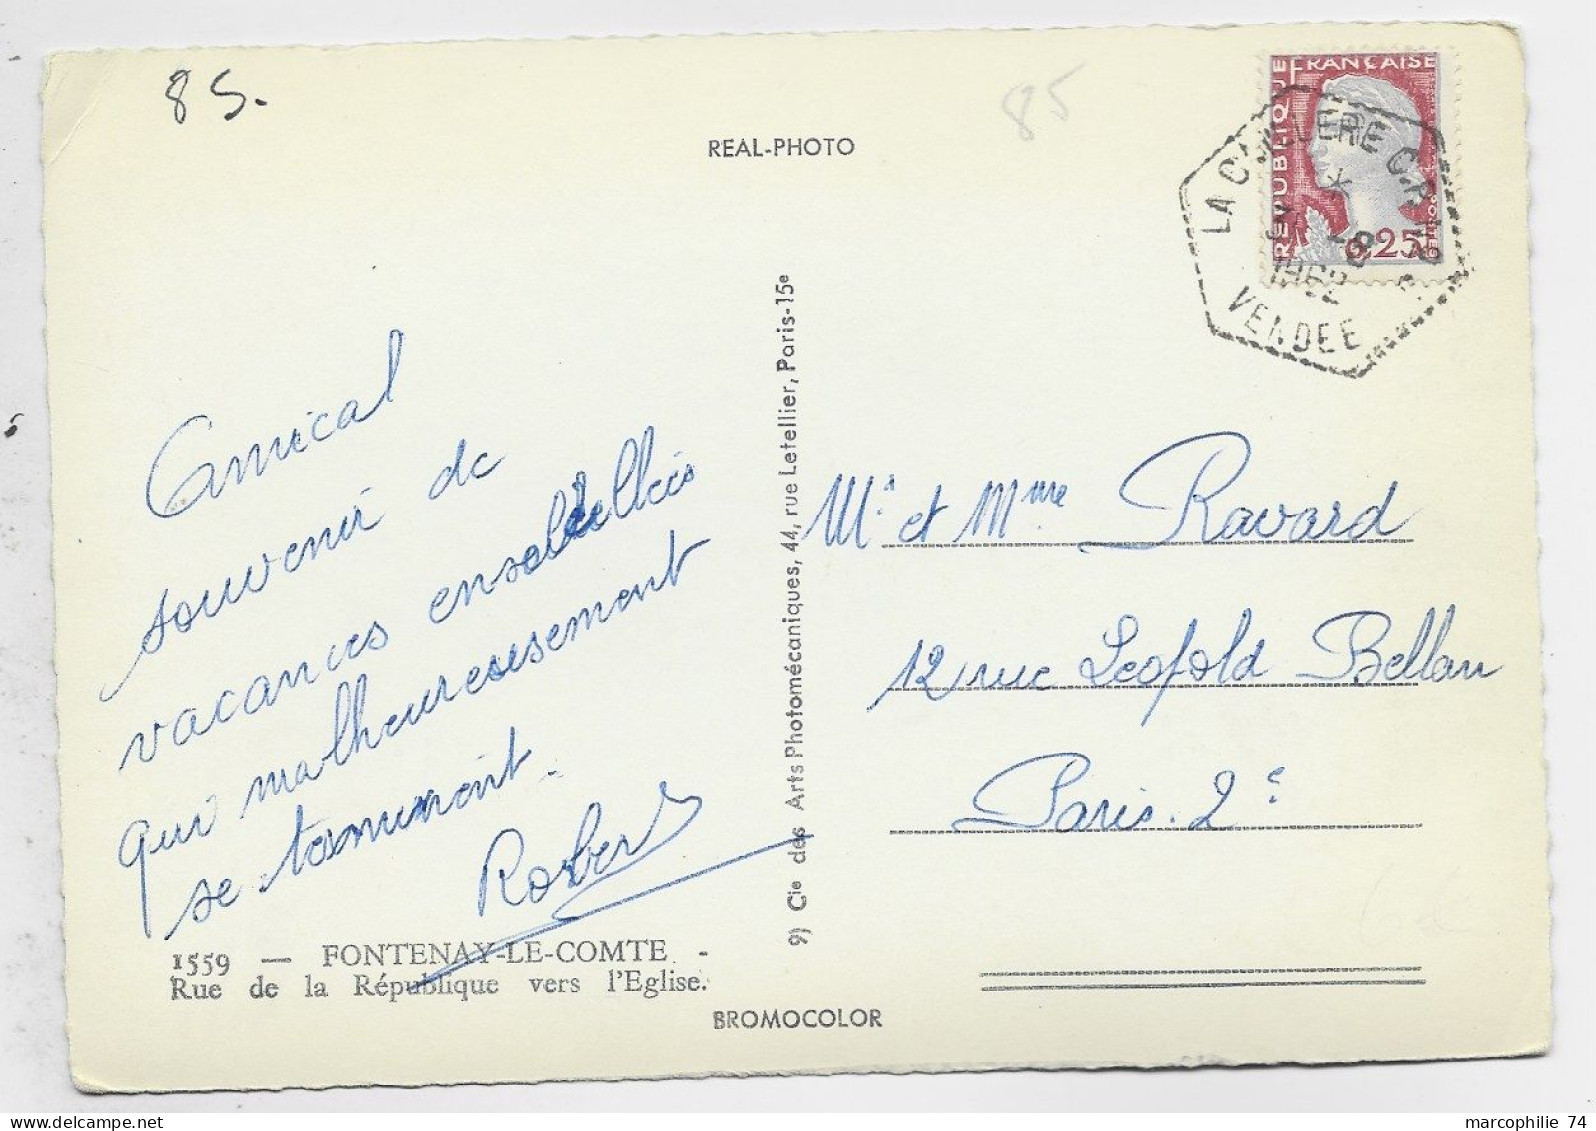 85.
85
REAL-PHOTO
REPUBLIQUE FRANÇAISE
0,25
POSTES
LA C
ERE C.P. N°
-8
1962
VENDEE
Amical
souvenir de
vacances ensoleillées
qui malheureusement
se terminent.
Robert
9) Cie des Arts Photomécaniques, 44, rue Letellier, Paris-15e
Mr et Mme Ravard
12 rue Léopold Bellan
Paris. 2e
1559 — FONTENAY-LE-COMTE -
Rue de la République vers l'Eglise.
BROMOCOLOR
marcophilie 74